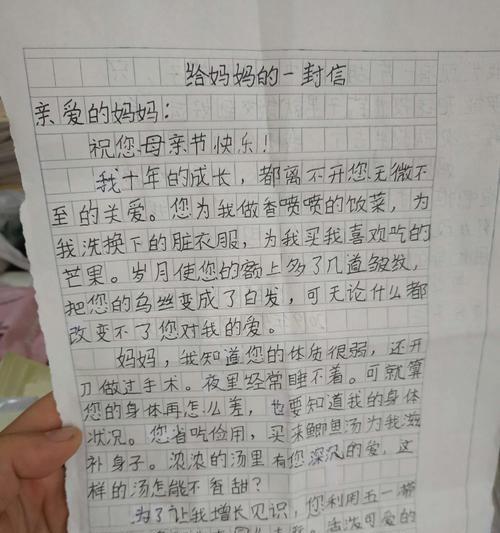 给妈妈的一封信
亲爱的妈妈：
祝您母亲节快乐！
我十年的成长，都离不开您无微不
至的关爱。您为我做香喷喷的饭菜，为
我洗换下的脏衣服，为我买我喜欢吃的
芒果。岁月使您的额上多了几道皱纹，
把您的乌丝变成了白发，可无论什么都
改变不了您对我的爱。
妈妈，我知道您的体质很弱，还开
刀做过手术。夜里经常睡不着。可就算
您的身体再怎么差，也要知道我的身体
状况。您省吃俭用，买来鲫鱼汤为我滋
补身子。浓浓的汤里有您深沉的爱，这
样的汤怎能不香甜？
为了让我增长见识，您利用五一
活泼可爱的